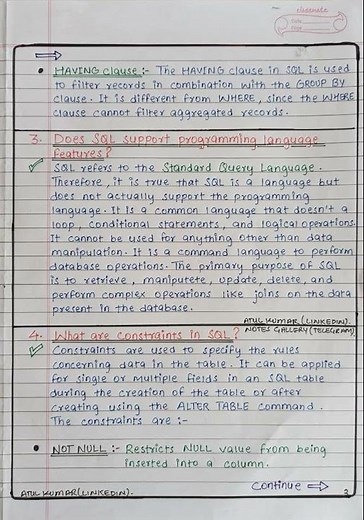 classmate
⇒
• HAVING clause :- The HAVING clause in SQL is used
to filter records in combination with the GROUP BY
clause. It is different from WHERE, since the WHERE
clause cannot filter aggregated records.
3. Does SQL support programming language
features?
SQL refers to the Standard Query Language.
Therefore, it is true that SQL is a language but
does not actually support the programming
language. It is a common language that doesn't a
loop, conditional statements, and logical operations.
It cannot be used for anything other than data
manipulation. It is a command language to perform
database operations. The primary purpose of SQL
is to retrieve, manipulete, update, delete, and
perform complex operations like joins on the data
present in the database.
ATUL KUMAR (LINKEDIN).
NOTES GALLERY (TELEGRAM)
4. What are constraints in SQL?
Constraints are used to specify the rules
concerning data in the table. It can be applied
for single or multiple fields in an SQL table
during the creation of the table or after
creating using the ALTER TABLE command.
The constraints are :-
• NOT NULL :- Restricts NULL value from being
inserted into a column.
Continue ⇒
ATUL KUMAR (LINKEDIN).
3